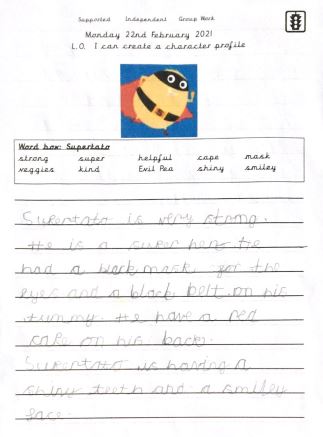 Supported Independent Group Work
Monday 22nd February 2021
L.O. I can create a character profile
Word box: Supertato
strong super helpful cape mask
veggies kind Evil Pea shiny smiley
Supertato is very strong.
He is a super hero He
had a black mask for the
eyes and a black belt on his
tummy. He have a red
cape on his back.
Supertato is having a
shiny teeth and a smiley
face.